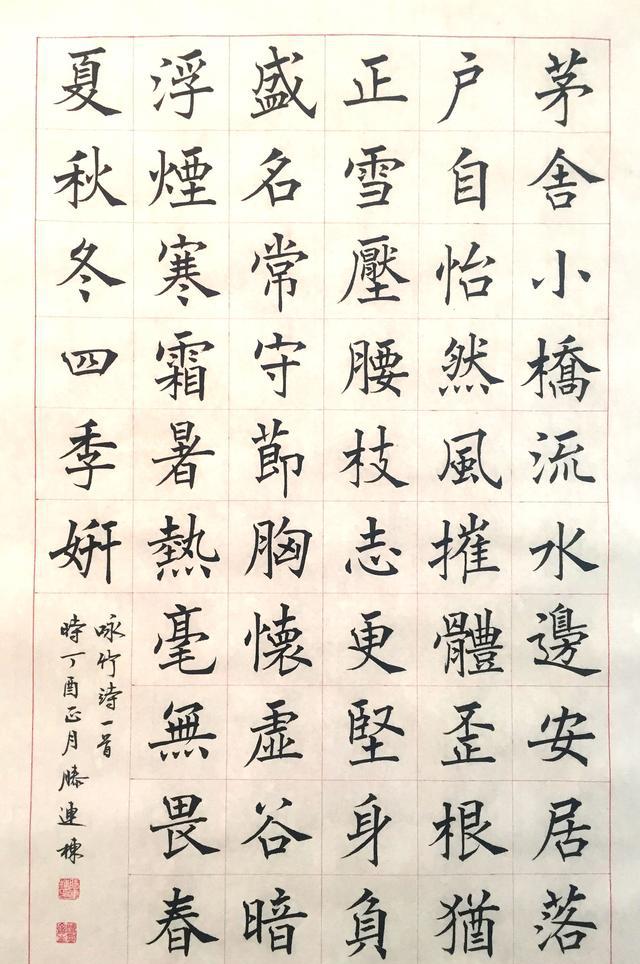 茅舍小橋流水邊安居落
户自怡然風摧體歪根猶
正雪壓腰枝志更堅身負
盛名常守節胸懷虛谷暗
浮煙寒霜暑熱毫無畏春
夏秋冬四季妍
咏竹詩一首
時丁酉正月滕連棟